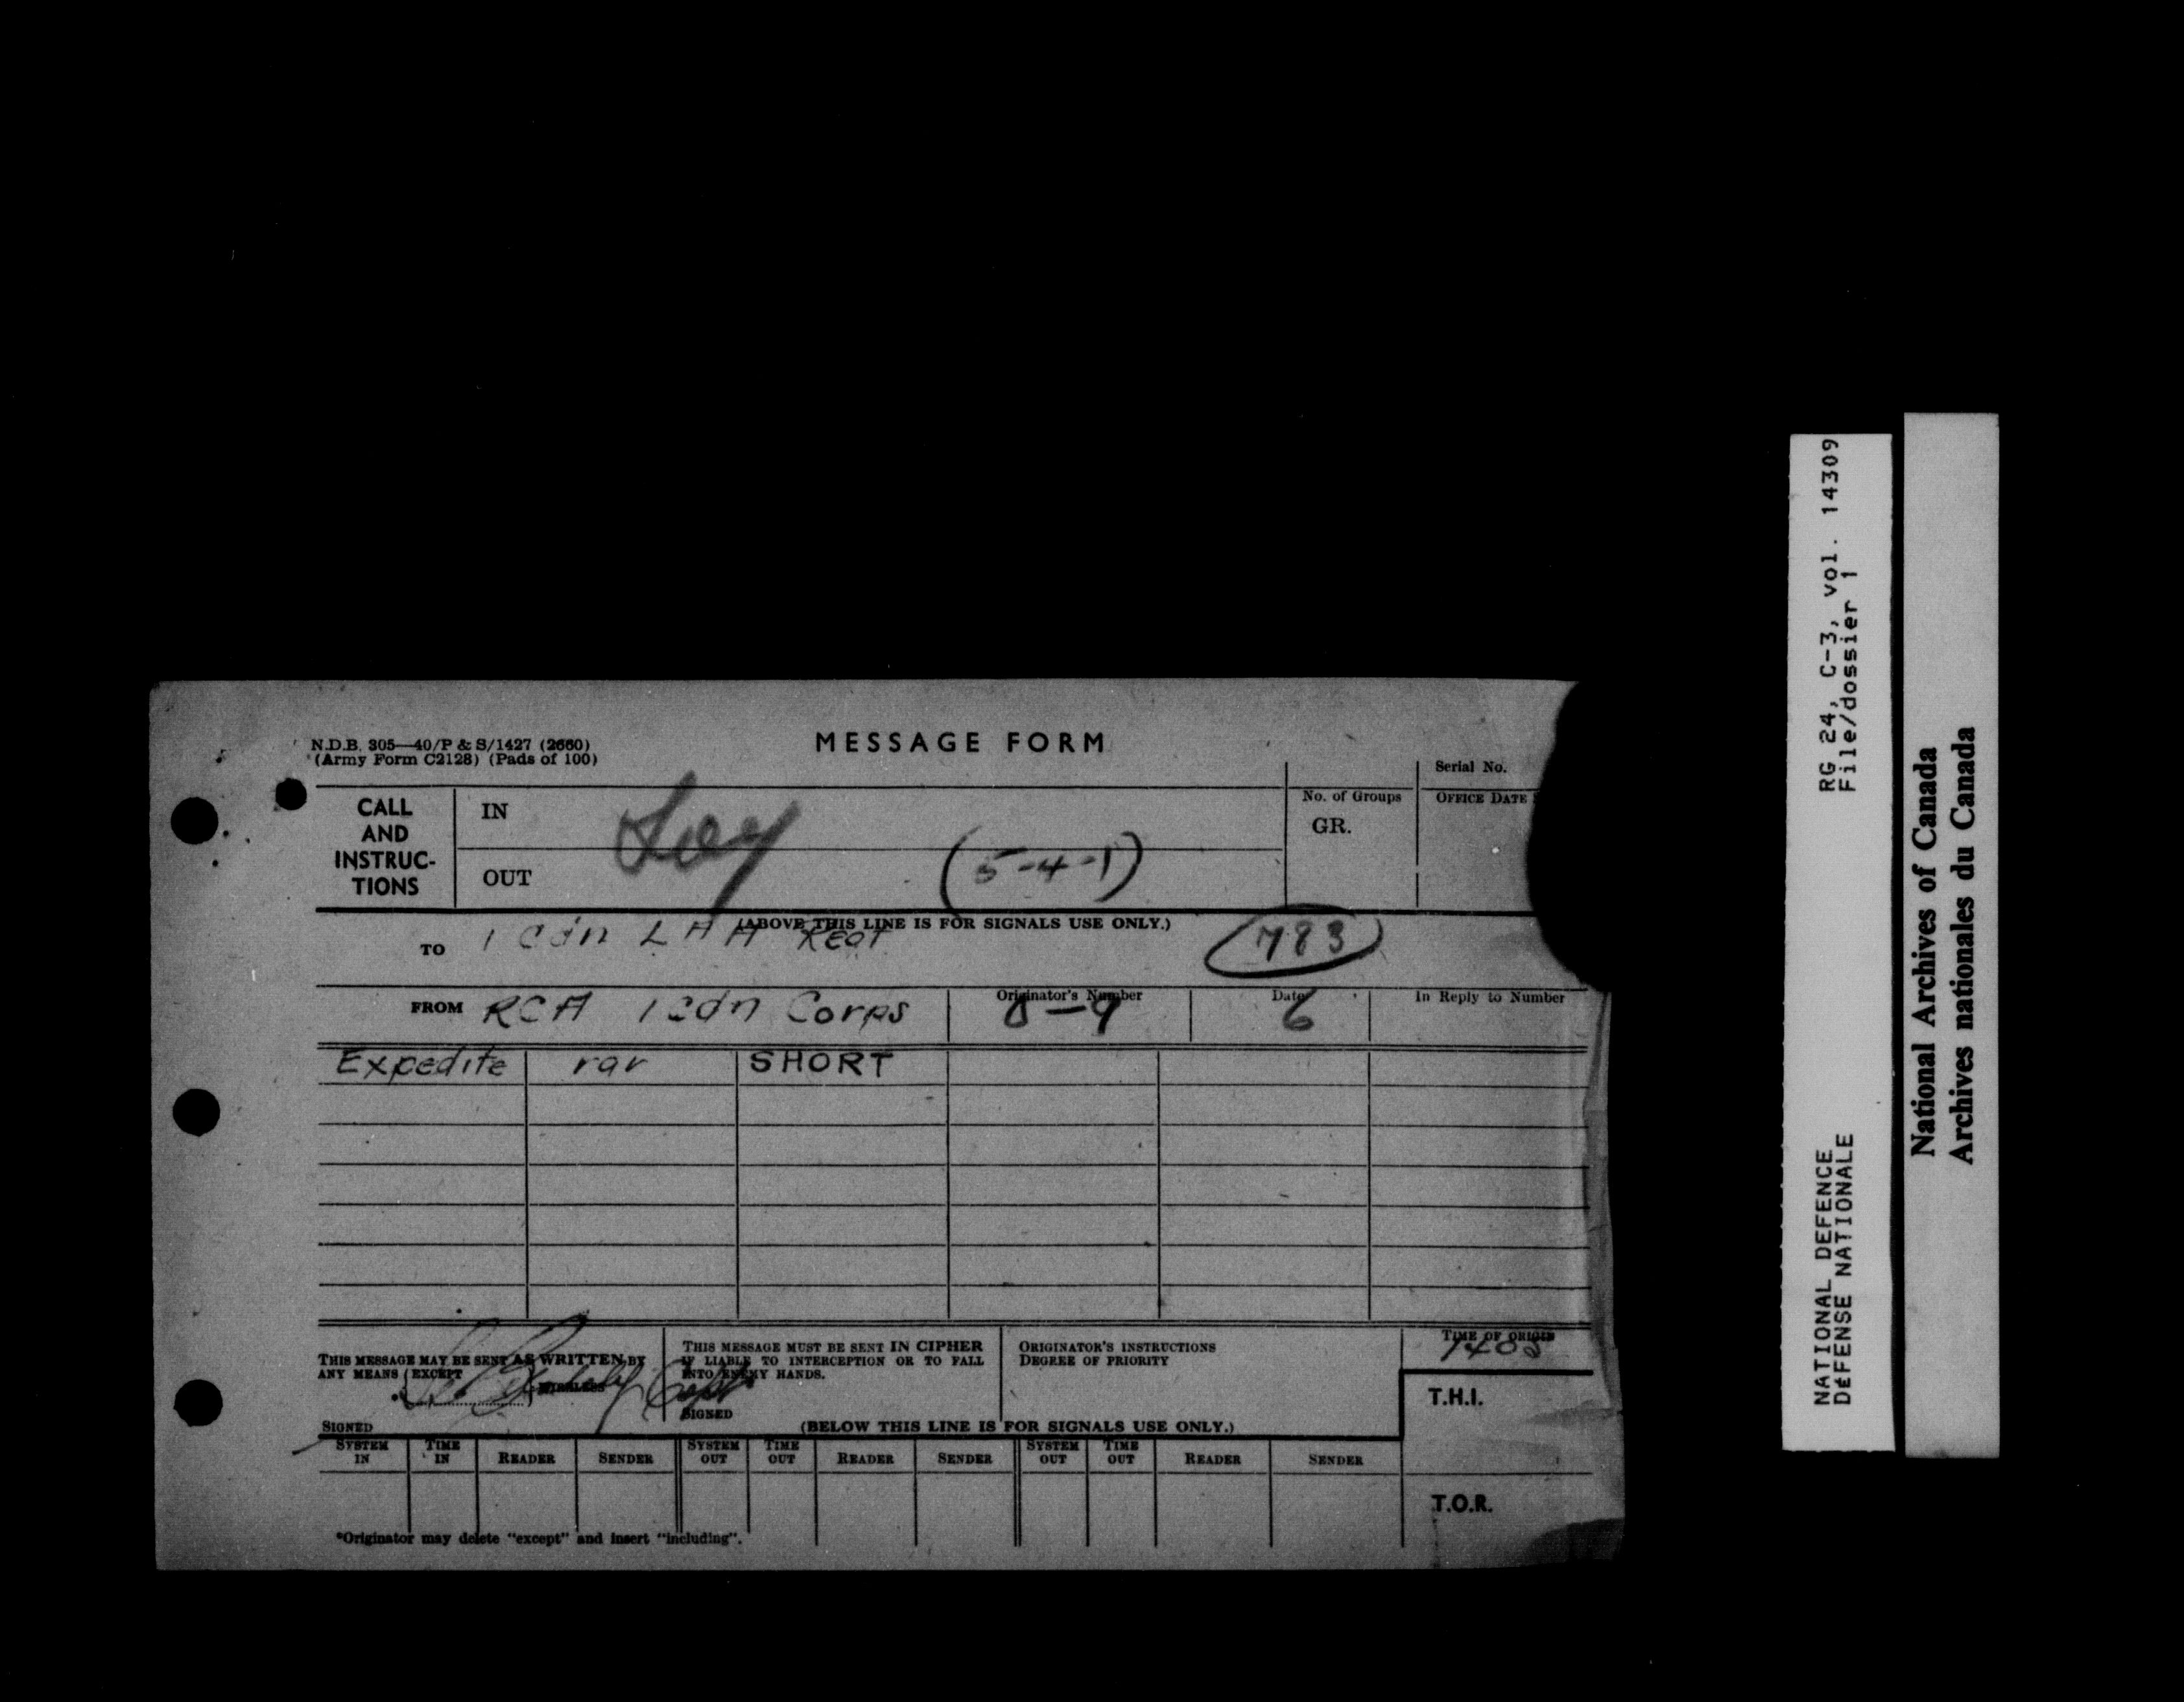 N.D.B. 305—40/P & S/1427 (2660)
(Army Form C2128) (Pads of 100)
MESSAGE FORM
Serial No.
CALL AND INSTRUC-TIONS
IN
No. of Groups
OFFICE DATE
GR.
OUT
(5-4-1)
(ABOVE THIS LINE IS FOR SIGNALS USE ONLY.)
TO 1 Cdn LAA Regt
783
FROM RCA 1 Cdn Corps
Originator's Number 8-9
Date 6
In Reply to Number
Expedite rar SHORT
THIS MESSAGE MAY BE SENT AS WRITTEN BY
ANY MEANS EXCEPT
WIRELESS
SIGNED
THIS MESSAGE MUST BE SENT IN CIPHER
IF LIABLE TO INTERCEPTION OR TO FALL
INTO ENEMY HANDS.
Capt
SIGNED
ORIGINATOR'S INSTRUCTIONS
DEGREE OF PRIORITY
TIME OF ORIGIN
1405
T.H.I.
(BELOW THIS LINE IS FOR SIGNALS USE ONLY.)
SYSTEM IN TIME IN READER SENDER SYSTEM OUT TIME OUT READER SENDER SYSTEM OUT TIME OUT READER SENDER
T.O.R.
*Originator may delete "except" and insert "including".
RG 24, C-3, vol. 14309
File/dossier 1
NATIONAL DEFENCE
DÉFENSE NATIONALE
National Archives of Canada
Archives nationales du Canada